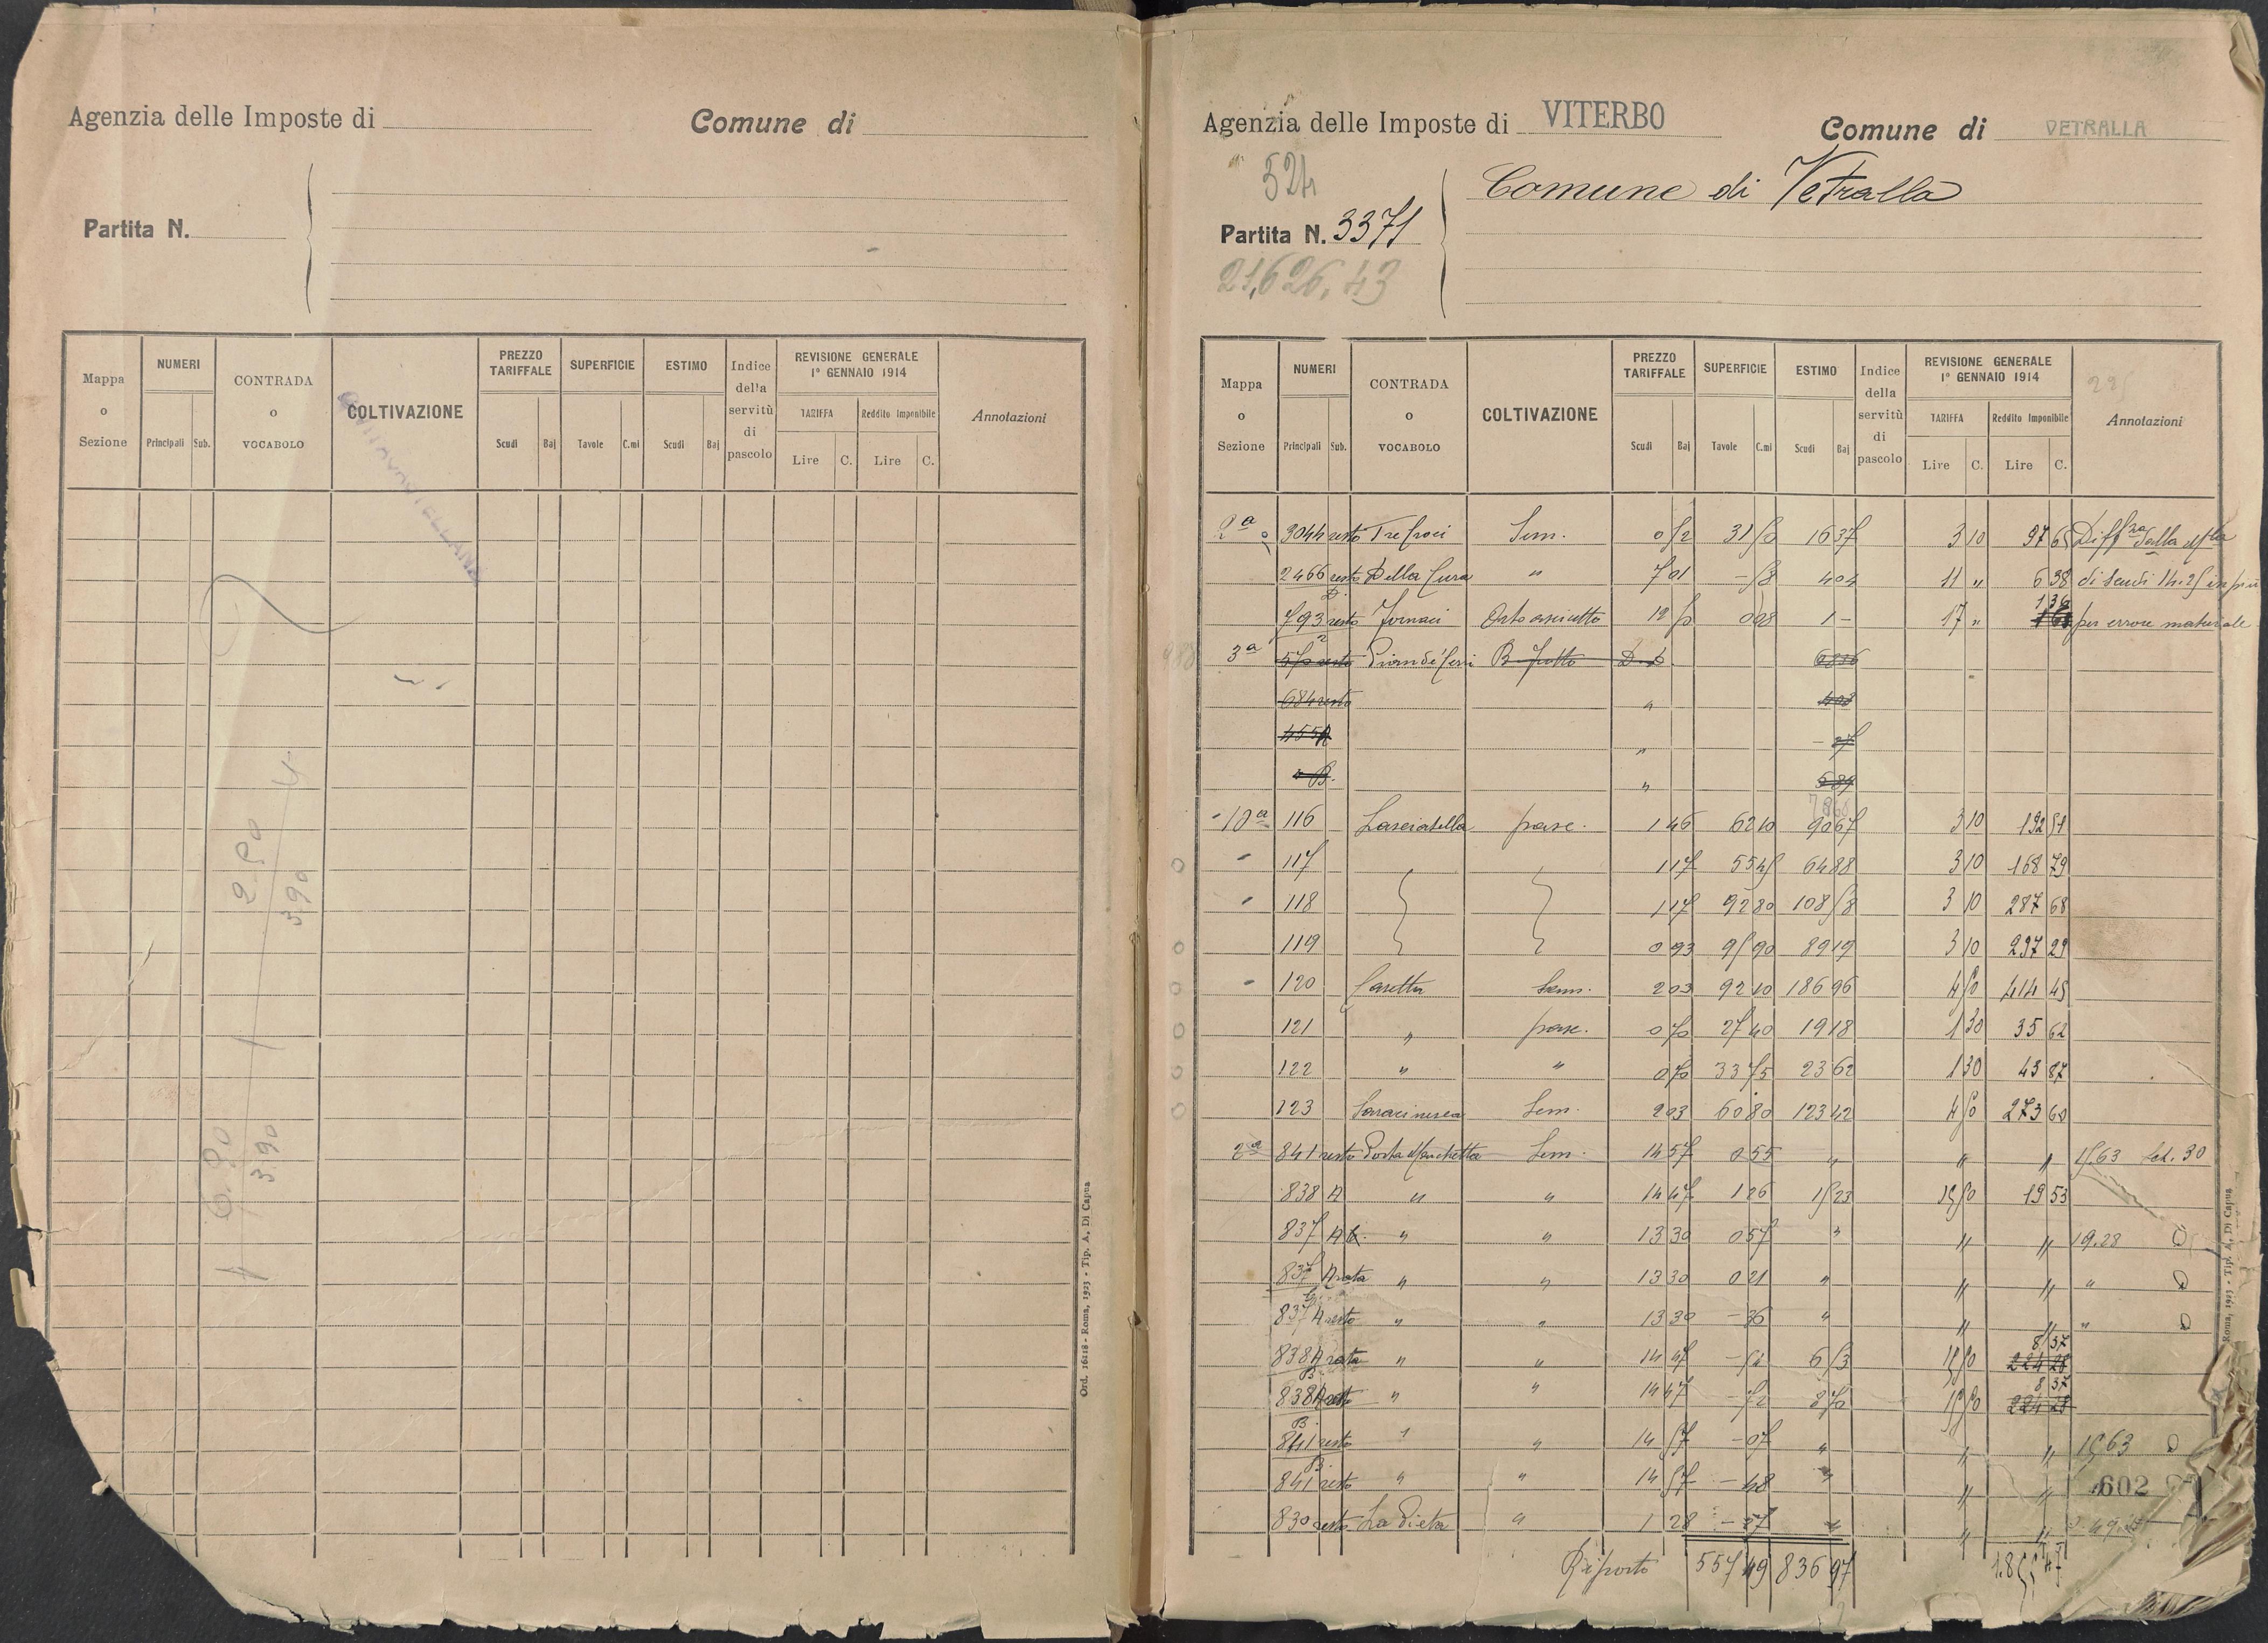 Agenzia delle Imposte di
Comune di
Partita N.
Mappa o Sezione
NUMERI
Principali Sub.
CONTRADA o VOCABOLO
COLTIVAZIONE
PREZZO TARIFFALE
Scudi Baj
SUPERFICIE
Tavole C.mi
ESTIMO
Scudi Baj
Indice della servitù di pascolo
REVISIONE GENERALE
1° GENNAIO 1914
TARIFFA
Lire C.
Reddito Imponibile
Lire C.
Annotazioni
2.90
3.90
6.90
3.90
Ord. 16118 - Roma, 1923 - Tip. A. Di Capua
Agenzia delle Imposte di VITERBO
Comune di VETRALLA
524
Comune di Vetralla
Partita N. 3371
21,626,43
Mappa o Sezione
NUMERI
Principali Sub.
CONTRADA o VOCABOLO
COLTIVAZIONE
PREZZO TARIFFALE
Scudi Baj
SUPERFICIE
Tavole C.mi
ESTIMO
Scudi Baj
Indice della servitù di pascolo
REVISIONE GENERALE
1° GENNAIO 1914
TARIFFA
Lire C.
Reddito Imponibile
Lire C.
Annotazioni
2a 3044 resto Tre Croci Sem. 0 52 31 50 16 37 3 10 97 65 Diffza dalla
2466 resto Della Cura " 7 01 - 58 4 04 11 " 6 38 di Scudi 14.25 in più
793 resto Fornaci Orto asciutto 12 50 0 08 1 - 17 " 1 36 per errore materiale
3a 570 resto
684 resto "
455 A "
" B. "
10a 116 pasc. 1 46 62 10 90 67 3 10 192 51
117 1 17 55 45 64 88 3 10 168 79
118 1 17 92 80 108 58 3 10 287 68
119 0 93 95 90 89 19 3 10 297 29
120 Casetta Sem. 2 03 92 10 186 96 4 50 414 45
121 " pasc. 0 70 27 40 19 18 1 30 35 62
122 " " 0 70 33 75 23 62 1 30 43 87
123 Saracinesca Sem. 2 03 60 80 123 42 4 50 273 60
2a 841 resto Porta Marchetta Sem. 14 57 0 55 " " " 15,63 Cat. 30
838 A " " 14 47 1 26 15 50 19 53
837 A " " 13 30 0 57 " " " 19.28
837 A rata " " 13 30 0 21 " " " "
837 A resto " " 13 30 - 36 " " " "
838 A rata " " 14 47 - 54 15 50 8 37
838 A resto " " 14 47 - 72 15 50 8 37
841 resto " " 14 57 - 07 " " " 15,63
841 resto " " 14 57 - 48 " " "
602
830 resto La Pieta " 1 28 - 37 " " "
Riporto 557 49 836 97 1.855 47
Roma, 1923 - Tip. A. Di Capua